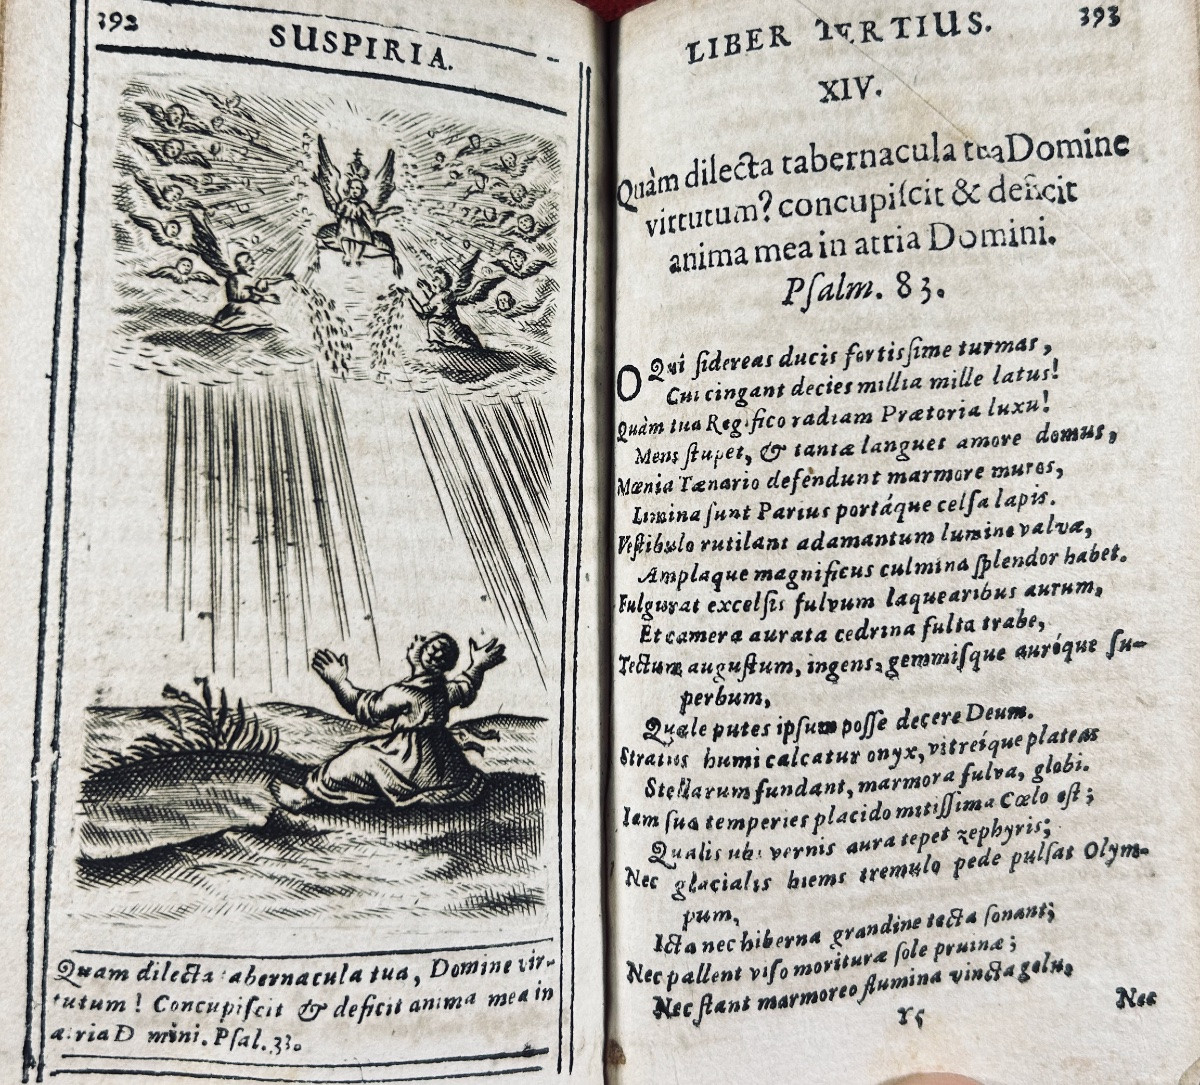 392
SUSPIRIA.
Quam dilecta tabernacula tua, Domine vir-
tutum! Concupiſcit & deficit anima mea in
atria Domini. Pſal. 33.
LIBER TERTIUS. 393
XIV.
Quàm dilecta tabernacula tua Domine
virtutum? concupiſcit & deficit
anima mea in atria Domini.
Pſalm. 83.
O Qui ſidereas ducis fortiſſime turmas,
Cui cingant decies millia mille latus!
Quàm tua Regifico radiam Prætoria luxu!
Mens ſtupet, & tantæ languet amore domus,
Mœnia Tænario defendunt marmore muros,
Limina ſunt Parius portáque celſa lapis.
Veſtibulo rutilant adamantum lumine valvæ,
Amplaque magnificus culmina ſplendor habet.
Fulgurat excelſis fulvum laquearibus aurum,
Et camera aurata cedrina fulta trabe,
Tectum auguſtum, ingens, gemmiſque auróque ſu-
perbum,
Quale putes ipſum poſſe decere Deum.
Stratus humi calcatur onyx, vitreíque plateas
Stellarum fundant, marmora fulva, globi.
Iam ſua temperies placido mitiſſima Cœlo eſt;
Qualis ubi vernis aura tepet zephyris;
Nec glacialis hiems tremulo pede pulſat Olym-
pum,
Icta nec hiberna grandine tecta ſonant;
Nec pallent viſo morituræ ſole pruinæ;
Nec ſtant marmoreo flumina vincta gelu,
r5 Nec